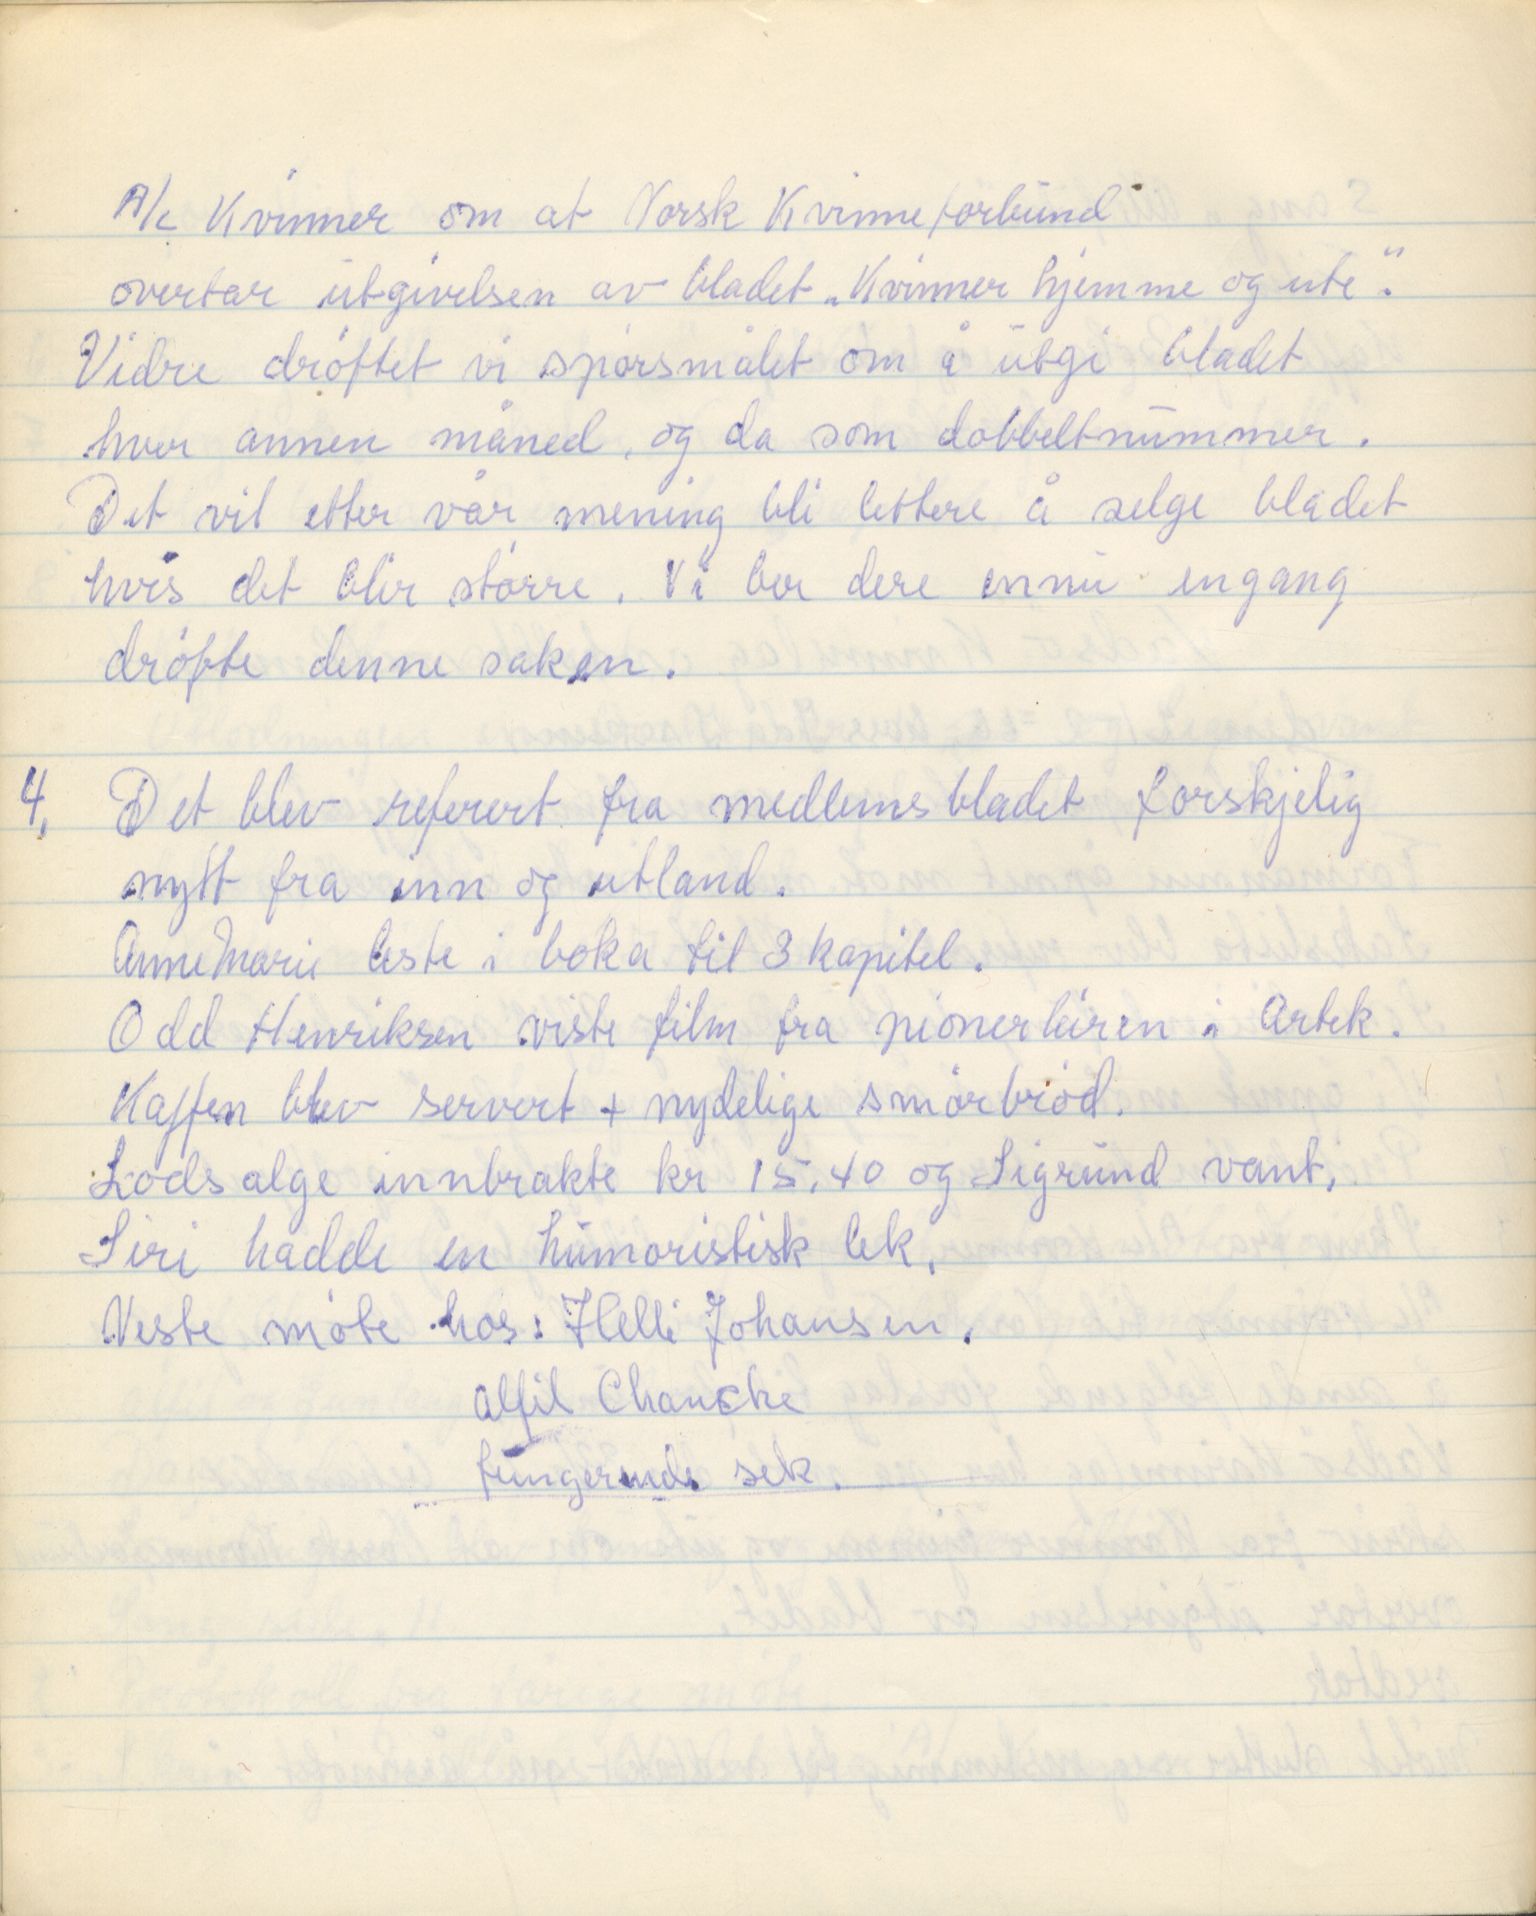 A/L Kvinner om at Norsk Kvinneforbund
overtar utgivelsen av bladet „Kvinner hjemme og ute".
Vidre drøftet vi spørsmålet om å utgi bladet
hver annen måned, og da som dobbeltnummer.
Det vil etter vår mening bli lettere å selge bladet
hvis det blir større. Vi ber dere ennu engang
drøfte denne saken.
4. Det blev referert fra medlemsbladet forskjelig
nytt fra inn og utland.
AnneMarie leste i boka til 3 kapitel.
Odd Henriksen viste film fra pionerleiren i Artek.
Kaffen blev servert + nydelige smørbrød.
Lodsalge innbrakte kr 15,40 og Sigrund vant.
Siri hadde en humoristisk lek.
Neste møte hos: Helli Johansen.
Alfil Chancke
fungerende sek.